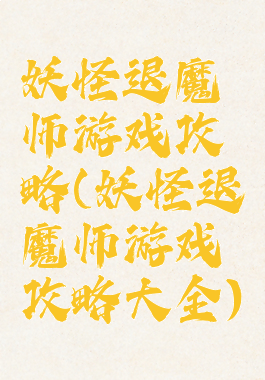 妖怪退魔
师游戏攻
略(妖怪退
魔师游戏
攻略大全)